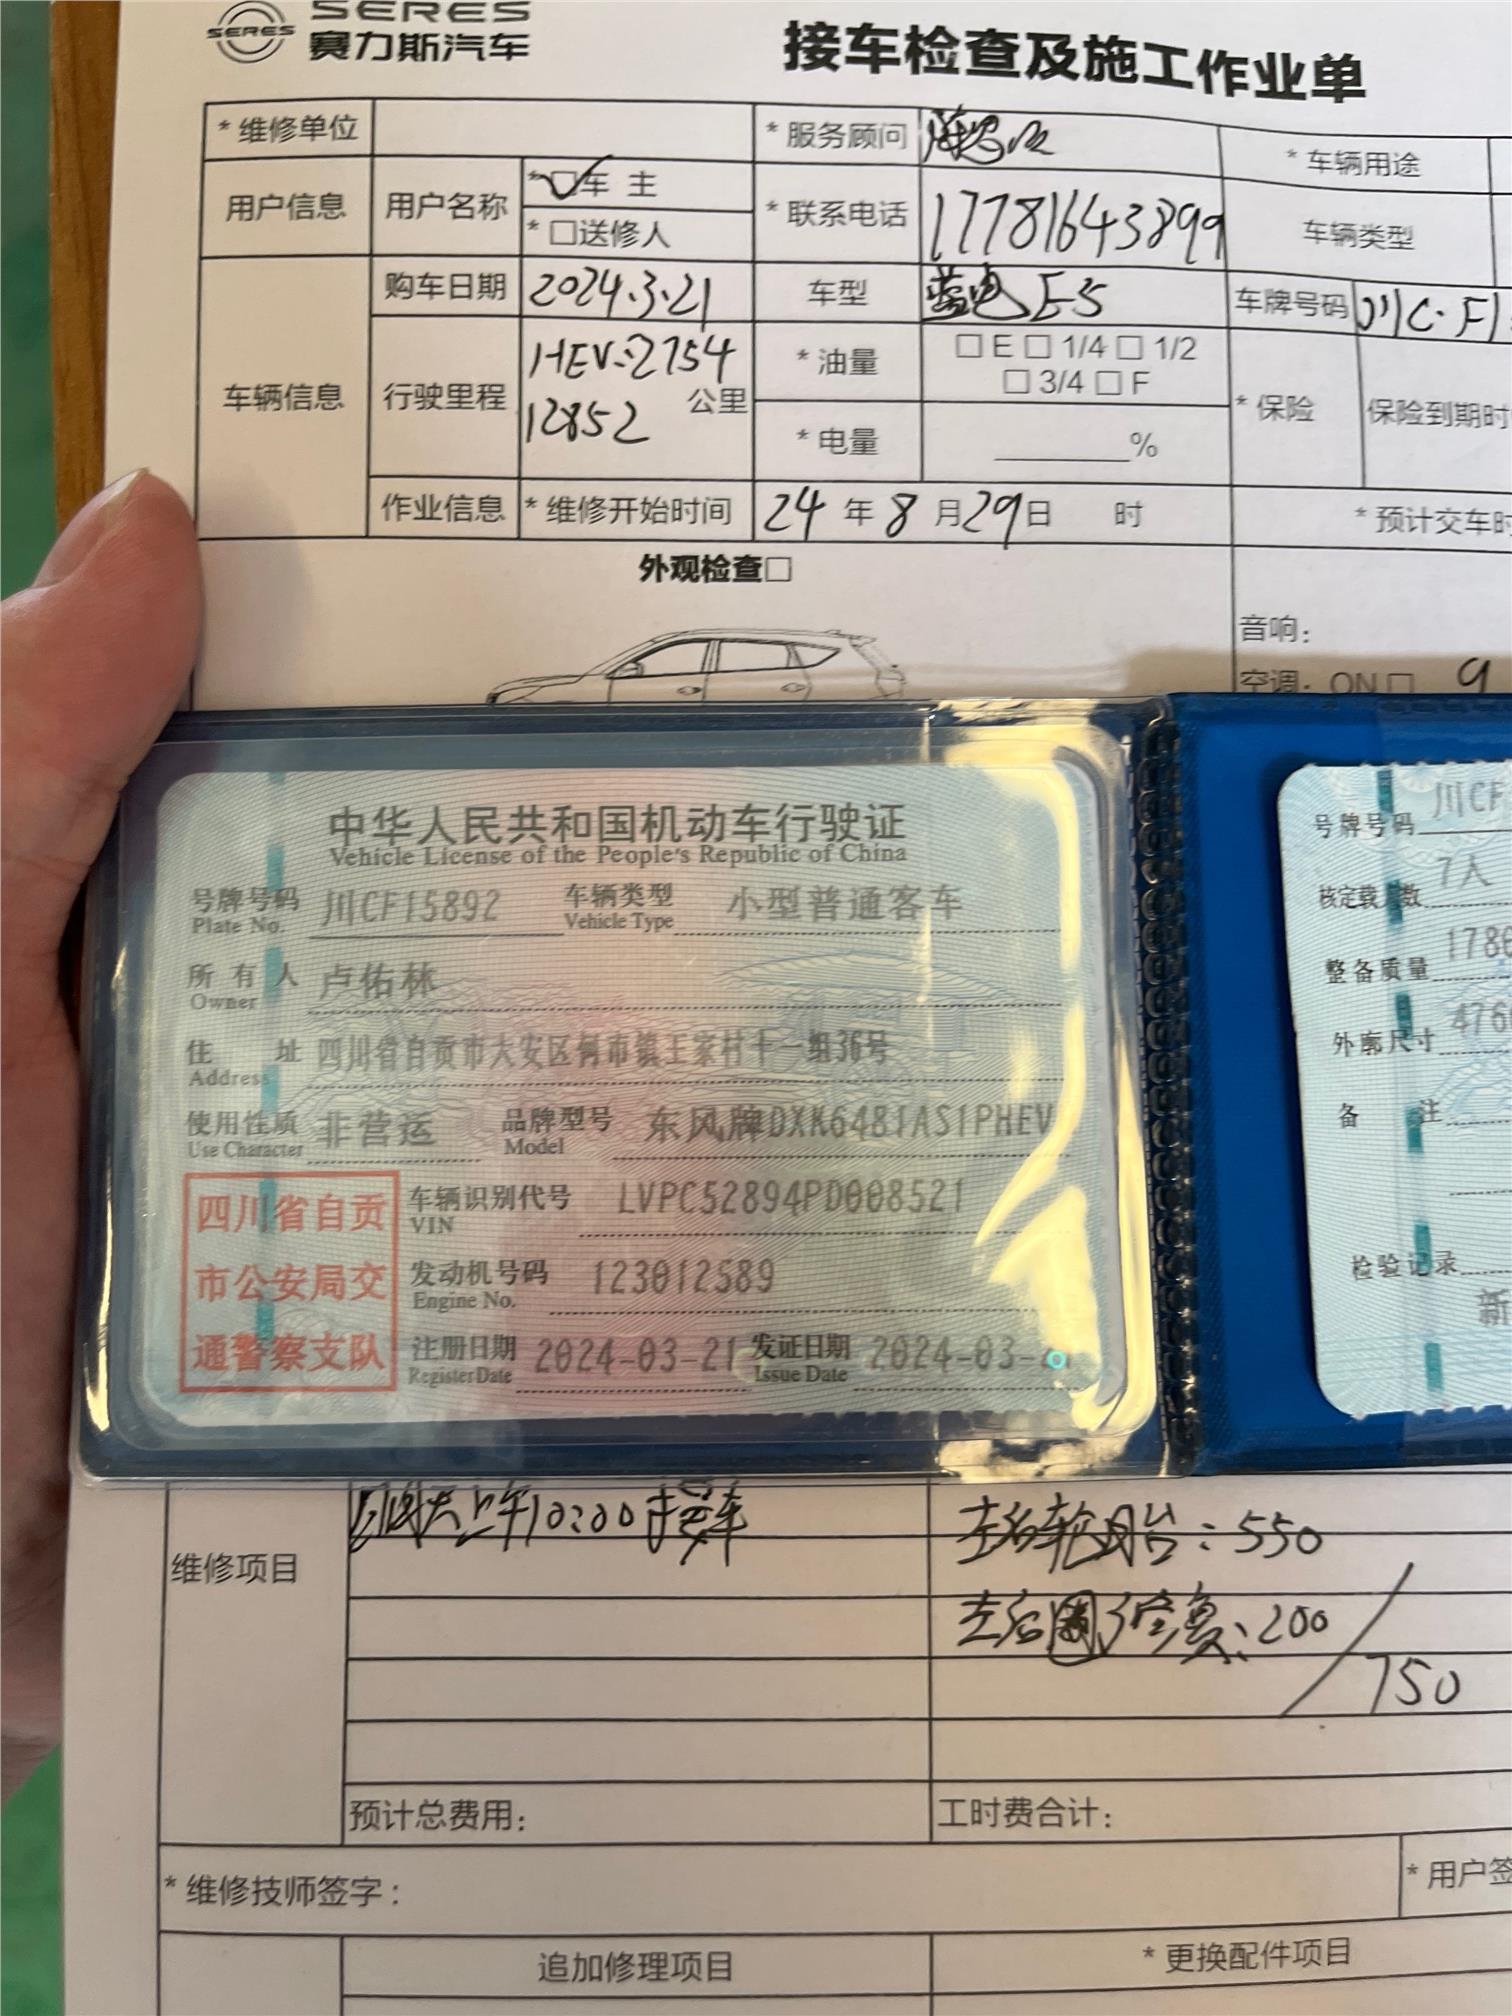 SERES
SERES 赛力斯汽车
接车检查及施工作业单
* 维修单位
* 服务顾问
* 车辆用途
用户信息 用户名称 * □车 主
* □送修人
* 联系电话 17781643899 车辆类型
车辆信息 购车日期 2024.3.21 车型 蓝电E5 车牌号码 川C·F1
行驶里程 HEV:2754
12852 公里
* 油量 □ E □ 1/4 □ 1/2
□ 3/4 □ F
* 电量 %
* 保险 保险到期时
作业信息 * 维修开始时间 24 年 8 月 29 日 时 * 预计交车时
外观检查□
音响:
空调: ON □ 9
中华人民共和国机动车行驶证
Vehicle License of the People's Republic of China
号牌号码 川CF15892 车辆类型 小型普通客车
Plate No. Vehicle Type
所有人 卢佑林
Owner
住 址 四川省自贡市大安区何市镇王家村十一组36号
Address
使用性质 非营运 品牌型号 东风牌DXK6481AS1PHEV
Use Character Model
四川省自贡
市公安局交
通警察支队
车辆识别代号 LVPC52894PD008521
VIN
发动机号码 123012589
Engine No.
注册日期 2024-03-21 发证日期 2024-03-
Register Date Issue Date
号牌号码 川CF
核定载人数 7人
整备质量 178
外廓尺寸 476
备 注
检验记录
新
维修项目
上午10:00接车
左后轮 : 550
左后圈修复: 200
750
预计总费用: 工时费合计:
* 维修技师签字: * 用户签
追加修理项目 * 更换配件项目